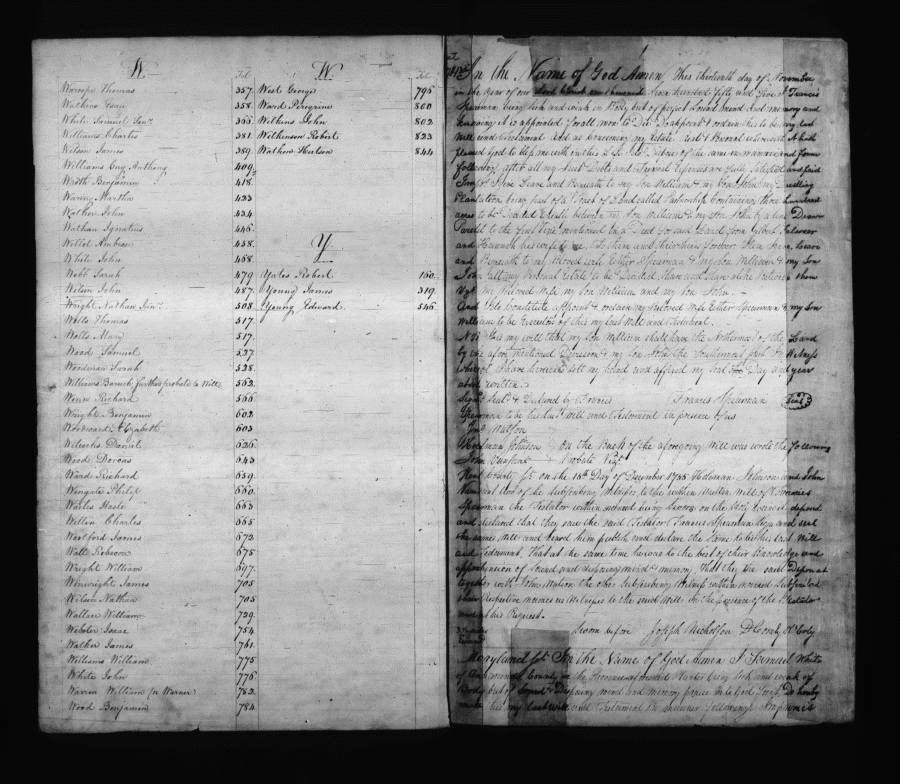 W
Fol.
Wroope Thomas 357
Watkins Esau 358
White Samuel Senr. 365
Williams Charles 381
Wilson James 389
Williams Eng. Anthony 409
Wroth Benjamin 418
Waring Martha 423
Walker John 434
Wathan Ignatius 446
Willet Ambrose 458
White John 468
Webb Sarah 479
Wilson John 487
Wright Nathan Senr. 508
Wells Thomas 517
Wells Mary 517
Wood Samuel 527
Woodman Sarah 528
Williams Baruch further probate to Will 562
Wenn Richard 566
Wright Benjamin 602
Woodward Elizabeth 603
Wilcocks Daniel 636
Wood Dorcas 643
Ward Richard 659
Wingate Philip 660
Warles Hasle 663
Wilson Charles 665
Woolford James 672
Wall Rebecca 675
Wright William 697
Winwright James 705
Wilson Nathan 705
Wallace William 739
Webster Isaac 754
Walker James 761
Williams William 775
White John 776
Warren William (or Warner) 782
Wood Benjamin 784
W
Fol.
West George 795
Ward Peregrine 800
Wilkins John 802
Wilkinson Robert 823
Wathen Hudson 844
Y
Yates Robert 150
Young James 319
Young Edward 546
In the Name of God Amen, This thirteenth day of November
in the Year of our Lord Seven hundred fifty and five I Francis
Spearman being sick and weak in Body but of perfect Sound mind and memory and
knowing it is appointed for all men to Die Do appoint & ordain this to be my last
Will and Testament And as Concerning my Estate Real & Personal wherewith
pleased God to bless me with in this Life I do Dispose of the same in manner and form
following after all my Just Debts and Funeral Expenses are fully satisfied and paid
Imps. I Give Leave and Bequeath to my Son William & my Son John my Dwelling
Plantation being part of a Tract of Land called Partnership Containing three hundred
acres to be Divided Equally between my Son William & my Son John by a line Drawn
Parallel to the first line mentioned in a Deed for said Land from Gilbert Falconer
and Hannah his wife to me, to them and their heirs forever Item I Give, Leave
and Bequeath to my beloved wife Esther Spearman & my Son William & my Son
John all my Personal Estate to be Divided Share and Share alike Between them
Viz. my beloved Wife my Son William and my Son John
And I do Constitute appoint & ordain my beloved Wife Esther Spearman & my Son
William to be Executors of this my last Will and Testament.
NB it is my will that my Son William shall have the Northermost of the Land
by the afore mentioned Division & my Son John the Southermost part In Witness
whereof I have hereunto sett my hand and affixed my Seal the Day and year
above written.
Signd Seald & Declared by Francis Francis Spearman Seal
Spearman to be his last Will and Testament in presence of us
Jno. Watson
Holeman Johnson On the Back of the aforegoing Will was wrote the following
John Vansant Probate Vizt.
Kent County sst. on the 18th Day of December 1755 Holeman Johnson and John
Vansant two of the Subscribing Witnesses to the within written Will of Francis
Spearman the Testator within named being Sworn on the Holy Evangels deposed
and declared that they saw the said Testator Francis Spearman Sign and seal
the same Will and heard him publish and declare the same to be his Last Will
and Testament, That at the same time he was to the best of their Knowledge and
apprehension of sound and disposing mind & memory. That they the said Deponents
together with John Watson the other Subscribing Witness within named Subscribed
their Respective names as Witnesses to the said Will in the presence of the Testator
and at his Request.
Sworn before Joseph Nicholson D Comry Kt Coty
Maryland sst. In the Name of God Amen I Samuel White
of Ann Arundel County in the Province aforesaid Planter being Sick and weak of
Body but of Sound & Disposing mind and memory praise be to God for it, Do hereby
make this my last Will and Testament in manner following Imprimis